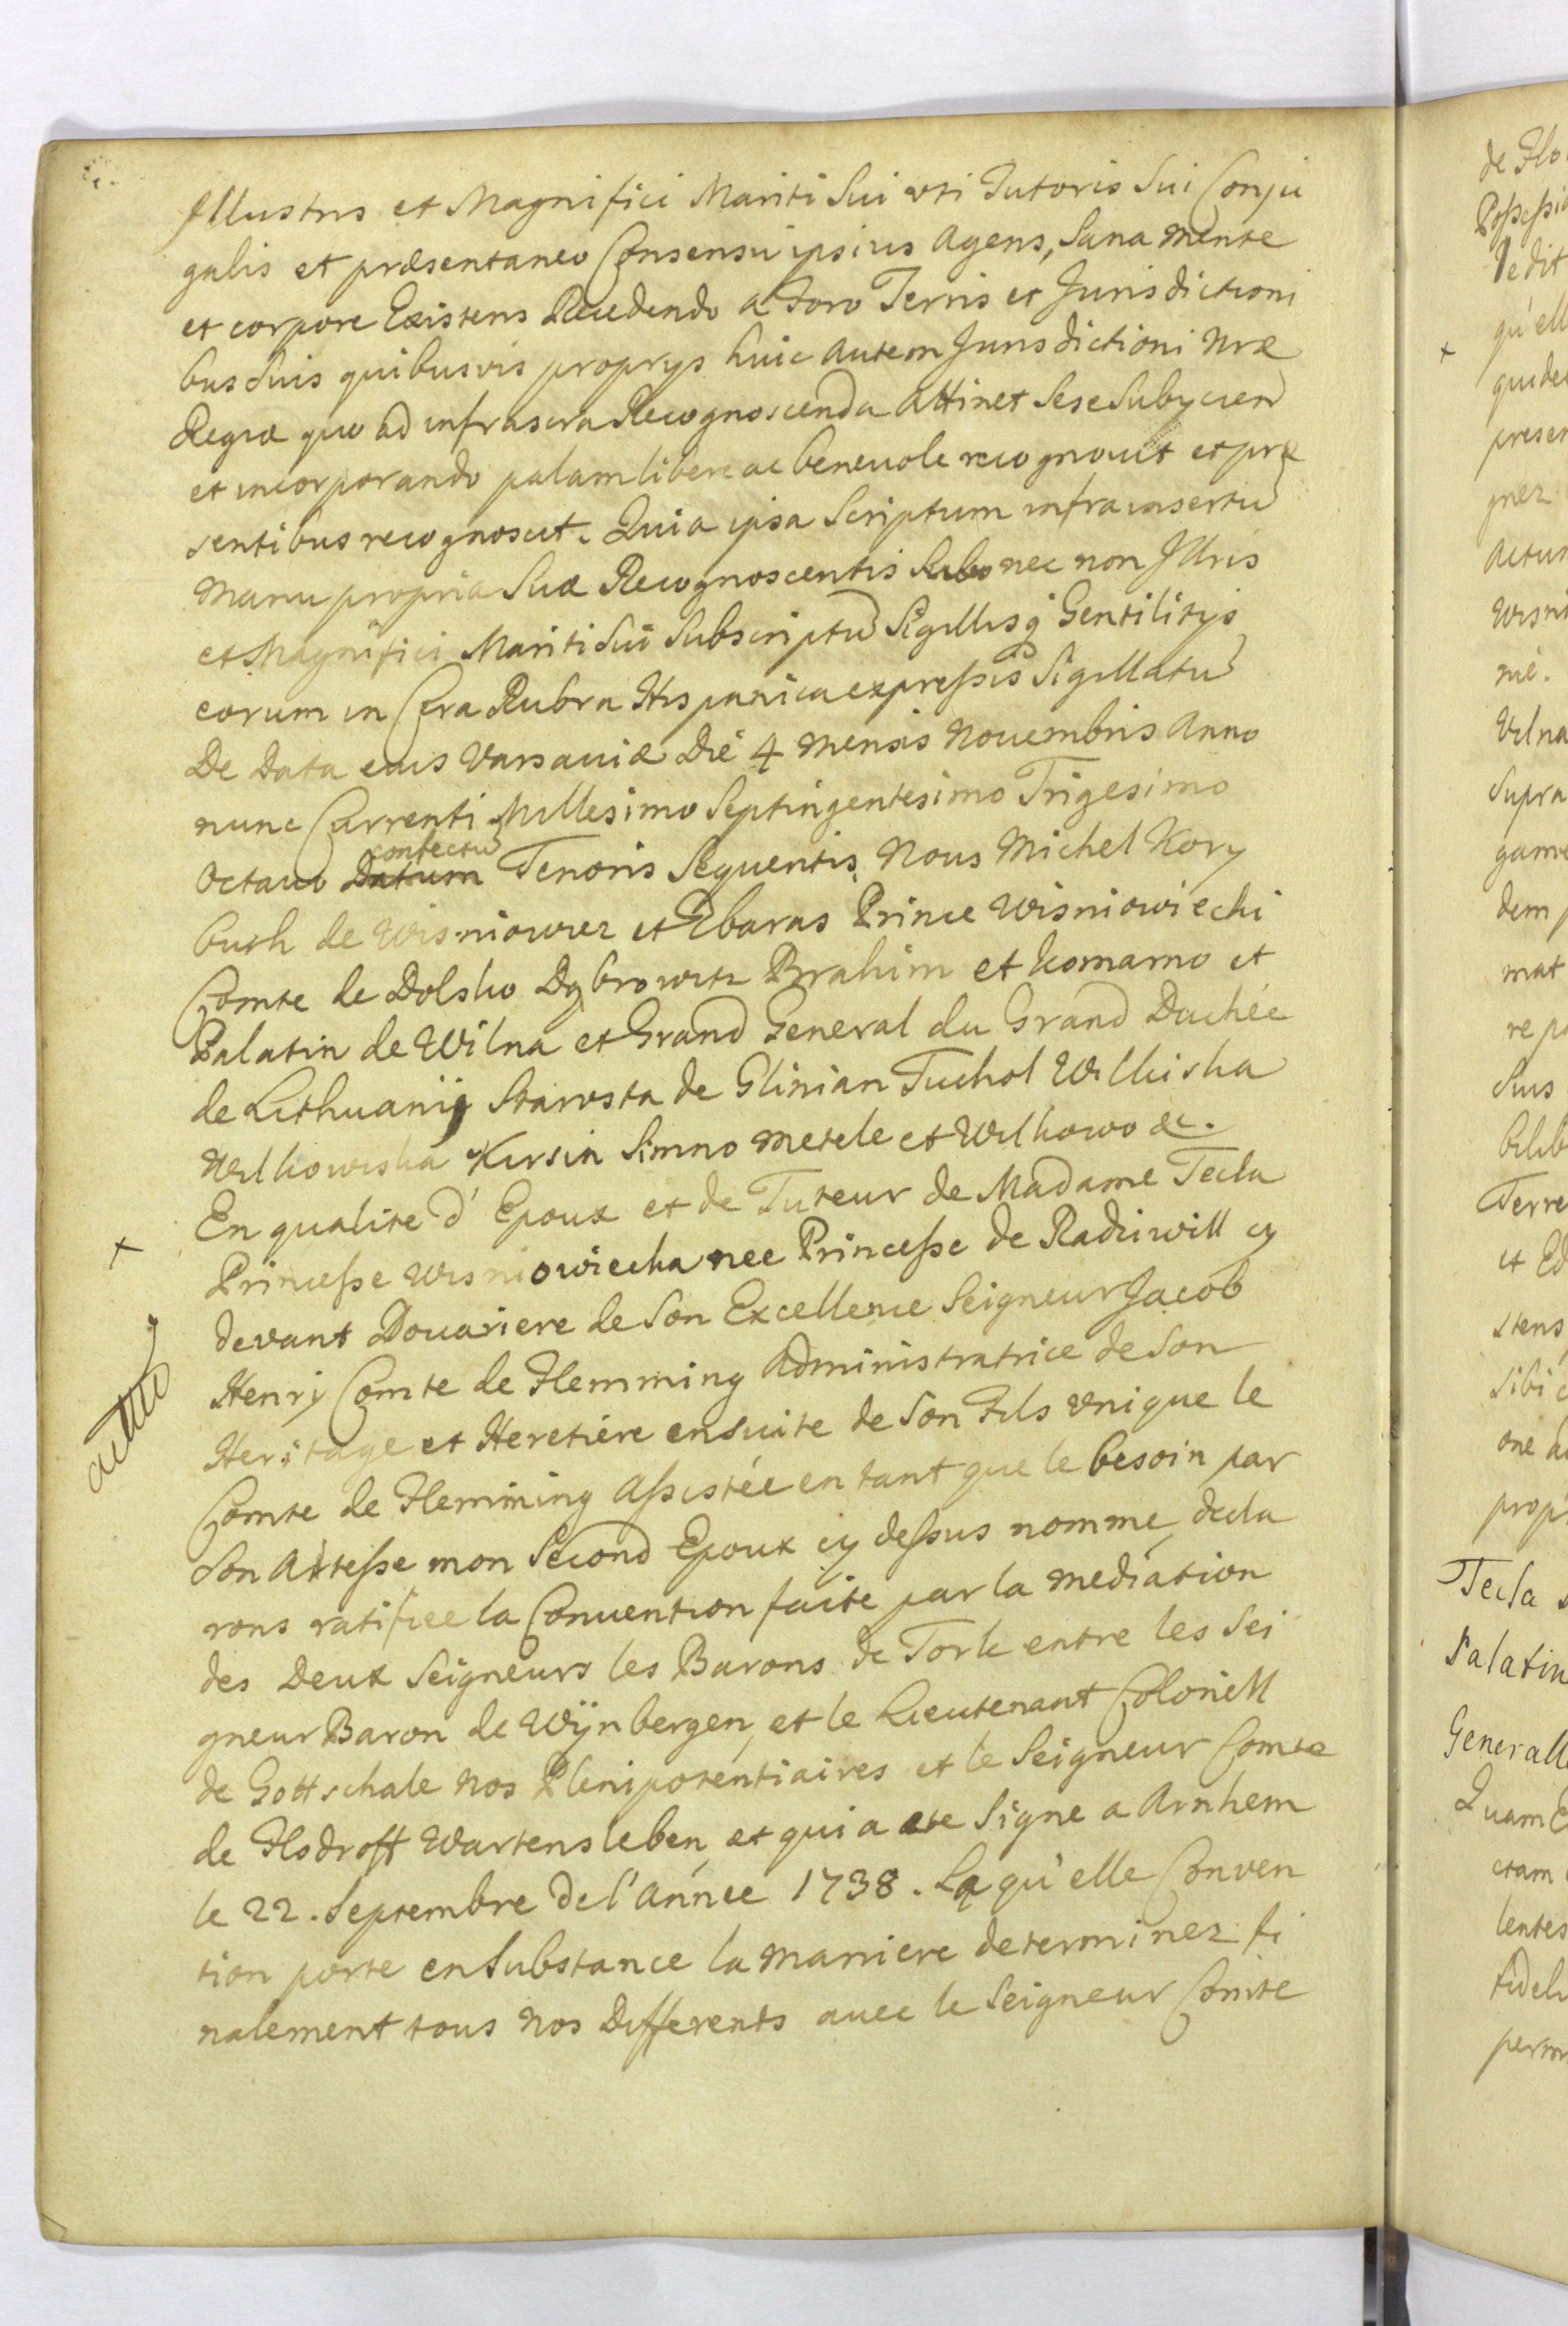 Illustris et Magnifici Mariti Sui uti Tutoris Sui Conju
galis et præsentaneo Consensu ipsius Agens, Sana mente
et corpore Existens Recedendo a Foro Terris et Jurisdictioni
bus Suis quibusvis proprys huic autem Jurisdictioni Nræ
Regiæ quo ad infrascra Recognoscenda attinet Sese Subycien
et incorporando palam libere ac benevole recognovit et præ
sentibus recognoscit. Quia ipsa Scriptum infra insertu
manu propria Suæ Recognoscentis nec non Illris
et Magnifici Mariti Sui Subscriptu Sigillisq Gentilitys
eorum in Cera Rubra Hispanica expreßis Sigillatu
De Data eius Varsaviæ Die 4 mensis Novembris Anno
nunc Currenti Millesimo Septingentesimo Trigesimo
Octavo Datum confectu Tenoris Sequentis. Nous Michel Kory
buth de Wisniowiez et Zbaras Prince Wisniowiecki
Comte de Dolsko Dybrowitz Brahim et Komarno et
Palatin de Wilna et Grand General du Grand Duchée
de Lithuanij Starosta de Glinian Tuchol Wilkiska
Wilkowiska Kirsin Simno Metele et Wilkowo &c.
En qualite d' Epoux et de Tuteur de Madame Tecla
Princeße Wisniowiecka nee Princeße de Radziwill cy
devant Douariere de Son Excellence Seigneur Jacob
Henry Comte de Flemming Administratrice de Son
Heritage et Heretiére ensuite de Son Fils unique le
Comte de Flemming Aßistée en tant que le besoin par
Son Alteße mon Second Epoux cy deßus nommé decla
rons ratifiee la Convention faite par la mediation
des Deux Seigneurs les Barons de Tork entre les Sei
gneur Baron de Wÿnbergen, et le Lieutenant Colonell
de Gottschalk nos Plenipotentiaires et le Seigneur Comte
de Flodroff Wartensleben et qui a ete Signe a Arnhem
le 22. Septembre de l'année 1738. La qu'elle Conven
tion porte en Substance la maniere determinez fi
nalement tous nos Differents avec le Seigneur Comte
de Flo
Dedit
qu'ell
presen
gnez
actum
Vilna
Supra
dem
mat
re po
Suis
Terre
et Ed
stens
Sibi
one
prop
Tecla
Palatin
Generall
Quam
etam
lentes
fideli